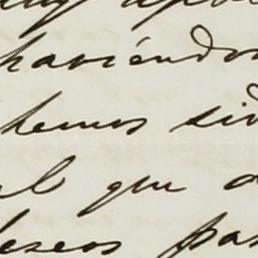 haviéndos
hemos sid
al que d
deseos pas